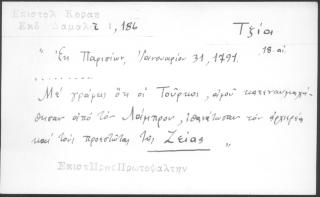 Επιστολ Κοραη
Εκδ Δαμαλᾶ 1,186
Τζία
18. αἰ.
" Ἐκ Παρισίων, Ἰανουαρίου 31, 1791.
.........
Μέ γράφεις ὅτι οἱ Τοῦρκοι, ἀφοῦ κατεναυμαχή-
θησαν ἀπό τόν Λάμπρον, ἐθανάτωσαν τόν ἀρχιερέα
καί τούς προεστῶτας τῆς Ζείας "
Επιστ Προς Πρωτοψαλτην